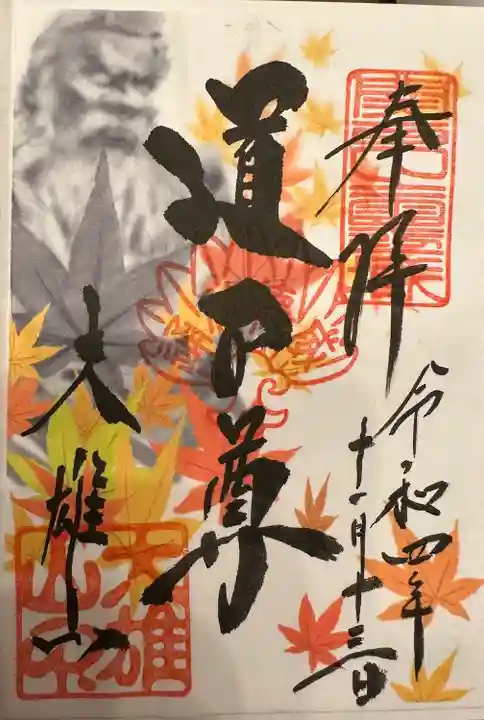 奉拝
令和四年
十一月十三日
道了尊
大雄山
大雄
山